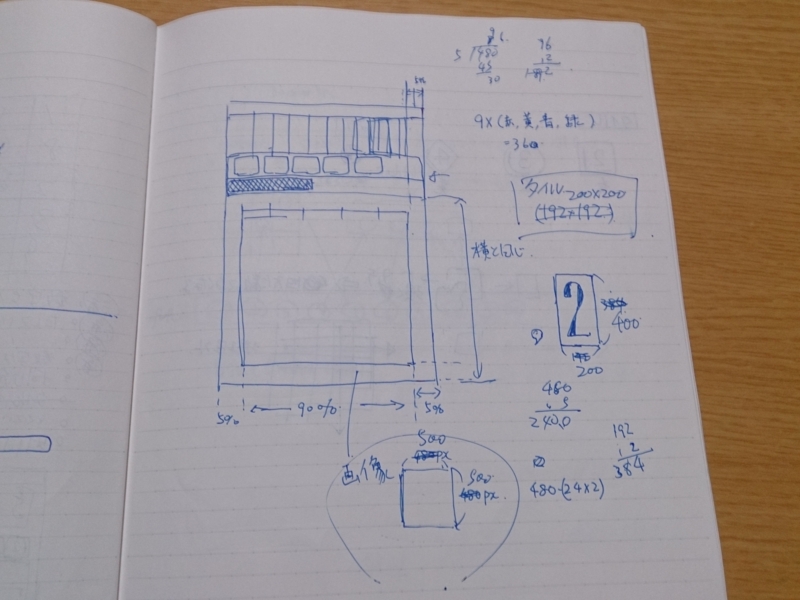 96
5)480
45
30
96
12
192
5%
9×(赤,黄,青,緑)
=360
タイル 200×200
(192×192)
横と同じ
2
①
400
200
480
2400
5%
90%
5%
画像
500
480px
500
480px
②
480-(24×2)
192
2
384